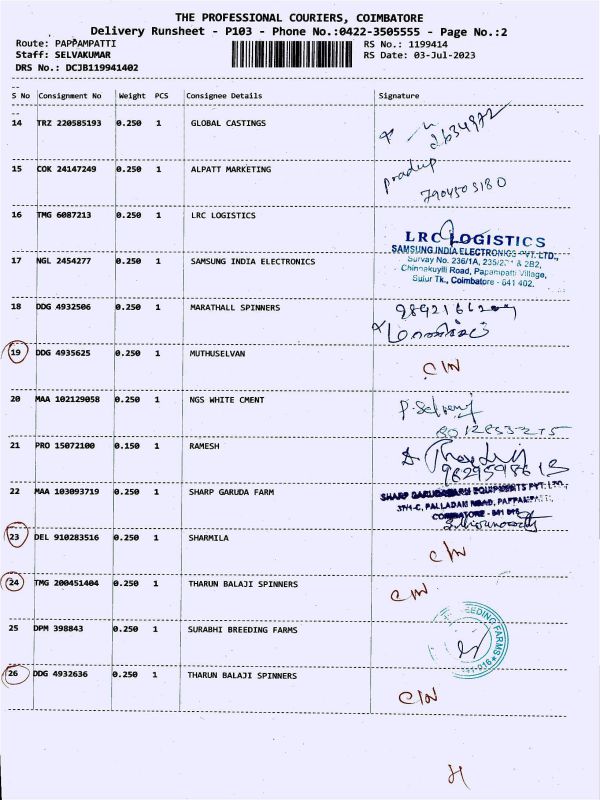 THE PROFESSIONAL COURIERS, COIMBATORE
Delivery Runsheet - P103 - Phone No.:0422-3505555 - Page No.:2
Route: PAPPAMPATTI RS No.: 1199414
Staff: SELVAKUMAR RS Date: 03-Jul-2023
DRS No.: DCJB119941402
S No Consignment No Weight PCS Consignee Details Signature
14 TRZ 220585193 0.250 1 GLOBAL CASTINGS
2634972
15 COK 24147249 0.250 1 ALPATT MARKETING
pradup
7904503180
16 TMG 6087213 0.250 1 LRC LOGISTICS
LRC LOGISTICS
17 NGL 2454277 0.250 1 SAMSUNG INDIA ELECTRONICS
SAMSUNG INDIA ELECTRONICS PVT. LTD.,
Survay No. 236/1A, & 2B2,
Chinnakuyili Road, Papampatti Village,
Sulur Tk., Coimbatore - 641 402.
18 DDG 4932506 0.250 1 MARATHALL SPINNERS
19 DDG 4935625 0.250 1 MUTHUSELVAN
C/N
20 MAA 102129058 0.250 1 NGS WHITE CMENT
P. Selvaraj
21 PRO 15072100 0.150 1 RAMESH
22 MAA 103093719 0.250 1 SHARP GARUDA FARM
SHARP GARUDA FARM EQUIPMENTS PVT. LTD.,
37/1-C, PALLADAM ROAD, PAPPAMPATTI,
COIMBATORE - 641 016
23 DEL 910283516 0.250 1 SHARMILA
C/N
24 TMG 200451404 0.250 1 THARUN BALAJI SPINNERS
C/N
25 DPM 398843 0.250 1 SURABHI BREEDING FARMS
EEDING FARMS
26 DDG 4932636 0.250 1 THARUN BALAJI SPINNERS
C/N